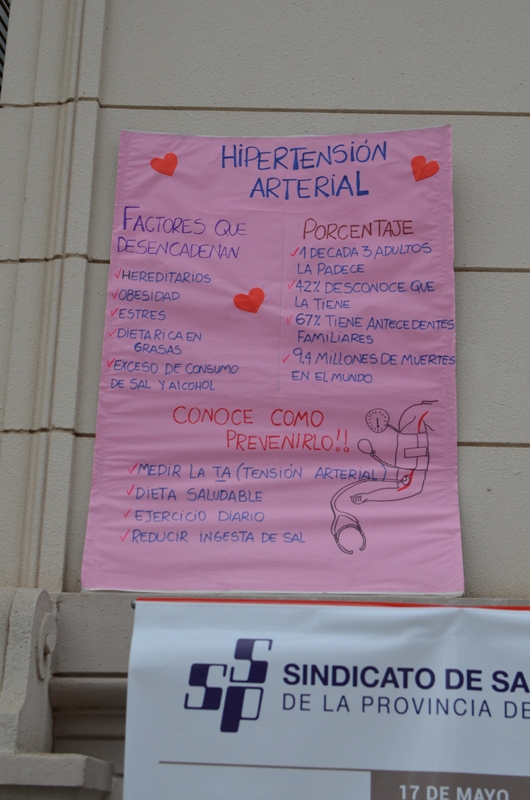 HIPERTENSIÓN
ARTERIAL
FACTORES QUE
DESENCADENAN
✓HEREDITARIOS
✓OBESIDAD
✓ESTRES
✓DIETA RICA EN
GRASAS
✓EXCESO DE CONSUMO
DE SAL Y AlCOHOL
PORCENTAJE
✓1 DE CADA 3 ADULTOS
LA PADECE
✓42% DESCONOCE QUE
LA TIENE
✓67% TIENE ANTECEDENTES
FAMILIARES
✓9,4 MILLONES DE MUERTES
EN EL MUNDO
CONOCE COMO
PREVENIRLO!!
✓MEDIR LA TA (TENSIÓN ARTERIAL)
✓DIETA SALUDABLE
✓EJERCICIO DIARIO
✓REDUCIR INGESTA DE SAL
SSP
SINDICATO DE SA
DE LA PROVINCIA DE
17 DE MAYO